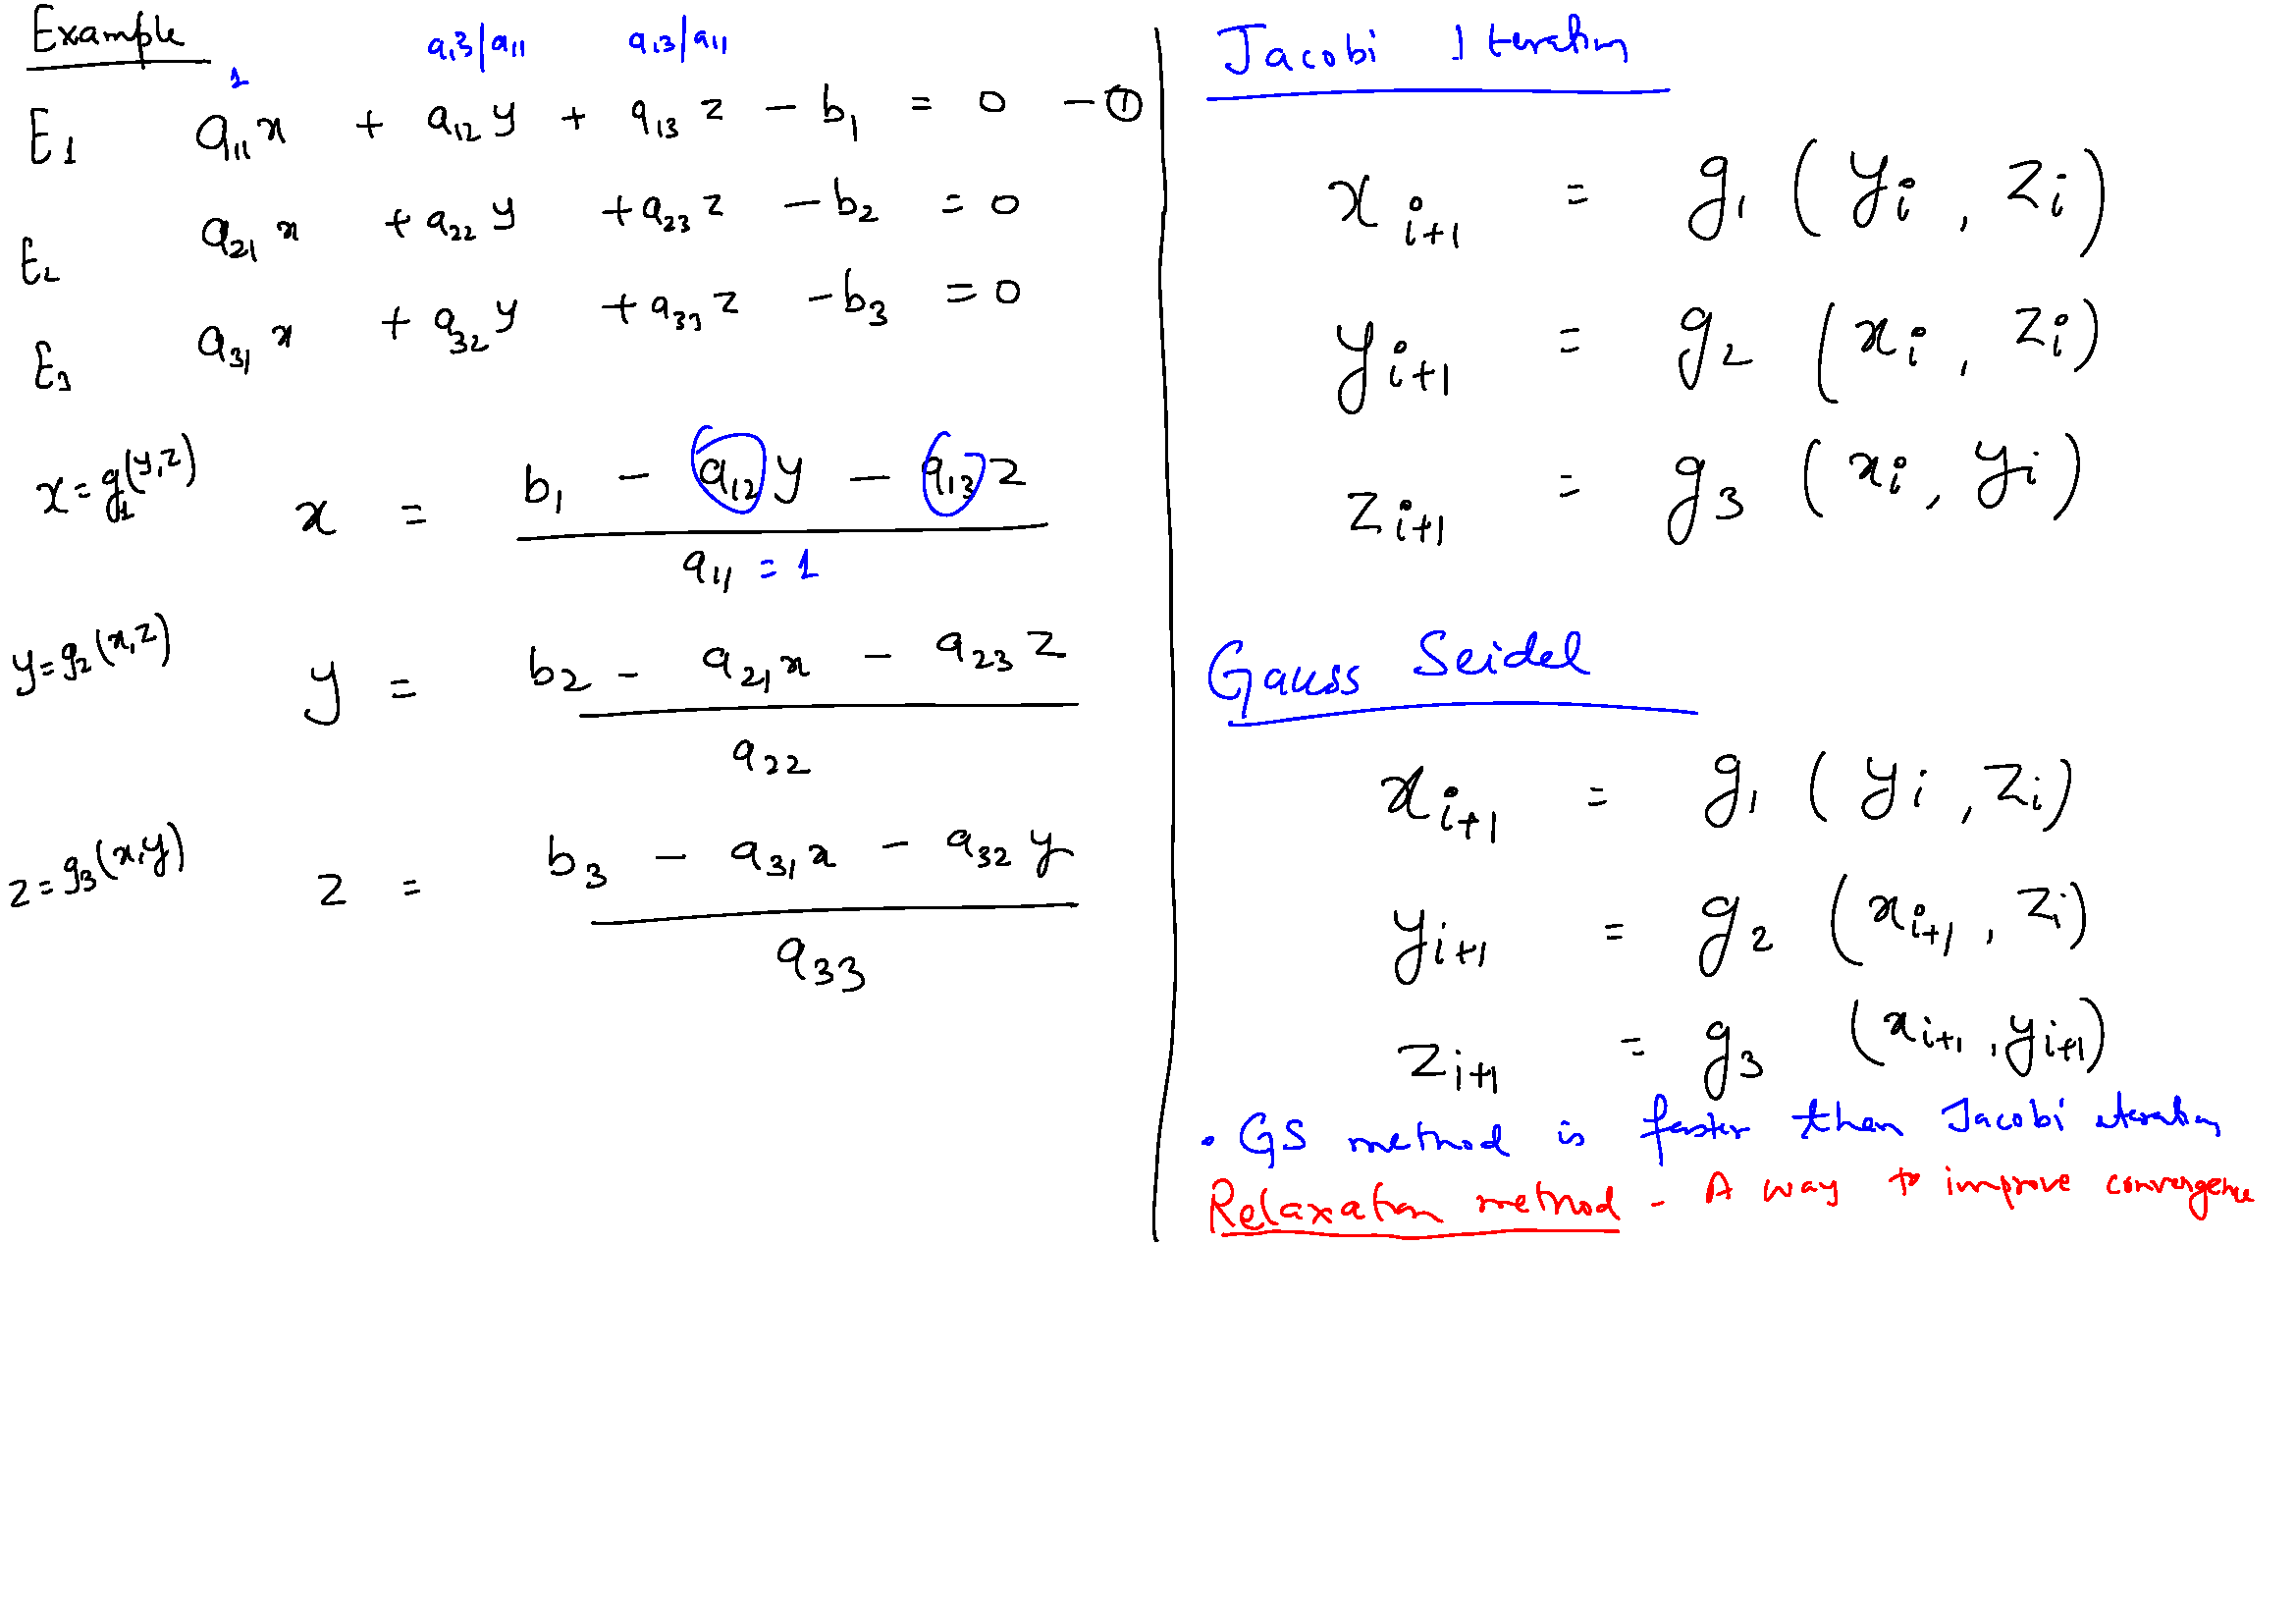 Example
a13/a11 a13/a11
1
E1 a11 x + a12 y + a13 z - b1 = 0 - ①
E2 a21 x + a22 y + a23 z - b2 = 0
E3 a31 x + a32 y + a33 z - b3 = 0
x = g1(y,z) x = b1 - a12 y - a13 z
a11 = 1
y = g2(x,z) y = b2 - a21 x - a23 z
a22
z = g3(x,y) z = b3 - a31 x - a32 y
a33
Jacobi Iteration
x i+1 = g1 ( yi , zi )
y i+1 = g2 ( xi , zi )
z i+1 = g3 ( xi , yi )
Gauss Seidel
x i+1 = g1 ( yi , zi )
y i+1 = g2 ( x i+1 , zi )
z i+1 = g3 ( x i+1 , y i+1 )
• GS method is faster then Jacobi iteration
Relaxation method - A way to improve convergence